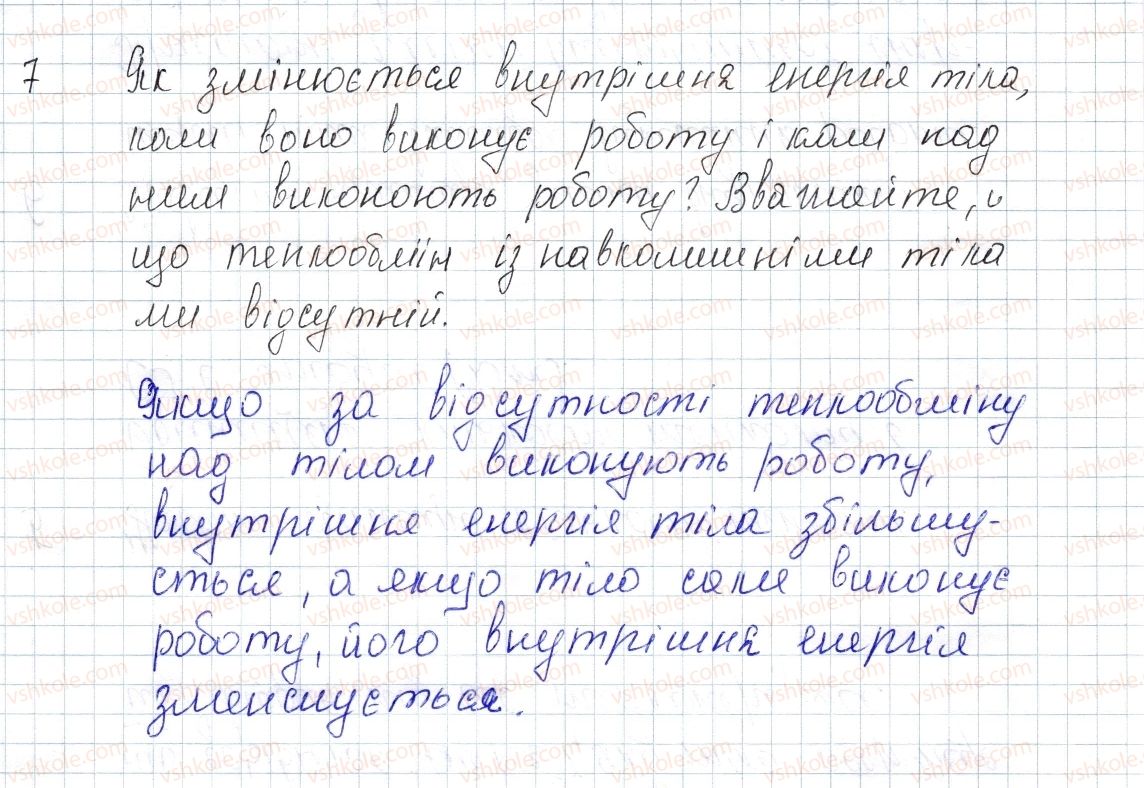 7 Як змінюється внутрішня енергія тіла,
коли воно виконує роботу і коли над
ним виконоють роботу? Вважайте,
що теплообмін із навколишніми тіла
ми відсутній.
Якщо за відсутності теплообміну
над тілом виконують роботу,
внутрішня енергія тіла збільшу-
ється, а якщо тіло саме виконує
роботу, його внутрішня енергія
зменшується.